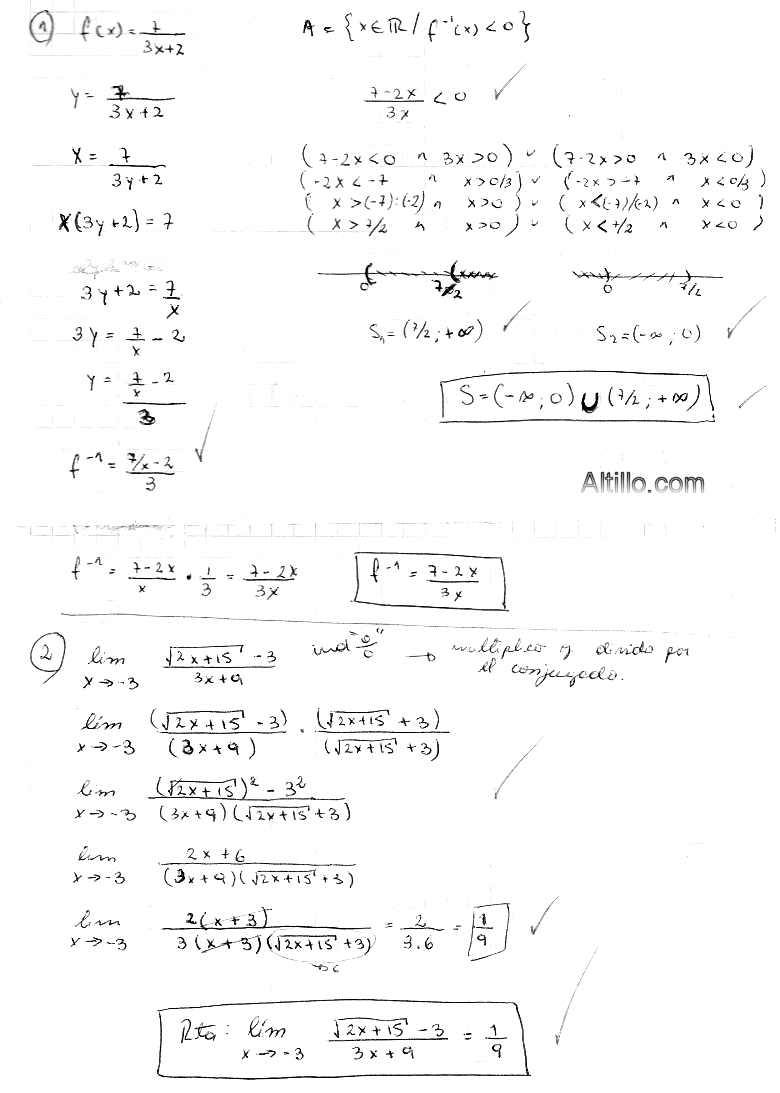 ① f(x) = 7/(3x+2)    A = {x∈ℝ / f⁻¹(x) < 0}
y = 7/(3x+2)    (7-2x)/3x < 0 ✓
x = 7/(3y+2)    (7-2x<0 ∧ 3x>0) ∨ (7-2x>0 ∧ 3x<0)
(-2x<-7 ∧ x>0/3) ∨ (-2x>-7 ∧ x<0/3)
x(3y+2) = 7    (x>(-7):(-2) ∧ x>0) ∨ (x<(-7)/(-2) ∧ x<0)
(x>7/2 ∧ x>0) ∨ (x<7/2 ∧ x<0)
3y+2 = 7/x    0 7/2    0 7/2
3y = 7/x - 2    S₁=(7/2; +∞) ✓    S₂=(-∞; 0) ✓
y = (7/x - 2)/3    S=(-∞; 0) ∪ (7/2; +∞) ✓
f⁻¹ = (7/x-2)/3 ✓
Altillo.com
f⁻¹ = (7-2x)/x · 1/3 = (7-2x)/3x    f⁻¹ = (7-2x)/3x
② lim x→-3 (√(2x+15) - 3)/(3x+9)    ind "0/0" → multiplico y divido por
el conjugado.
lím x→-3 (√(2x+15) - 3)/(3x+9) · (√(2x+15) + 3)/(√(2x+15) + 3)
lim x→-3 ((√(2x+15))² - 3²)/((3x+9)(√(2x+15)+3)) ✓
lim x→-3 (2x+6)/((3x+9)(√(2x+15)+3))
lim x→-3 2(x+3)/(3(x+3)(√(2x+15)+3)) = 2/(3.6) = 1/9 ✓
→6
Rta: lím x→-3 (√(2x+15) - 3)/(3x+9) = 1/9 ✓